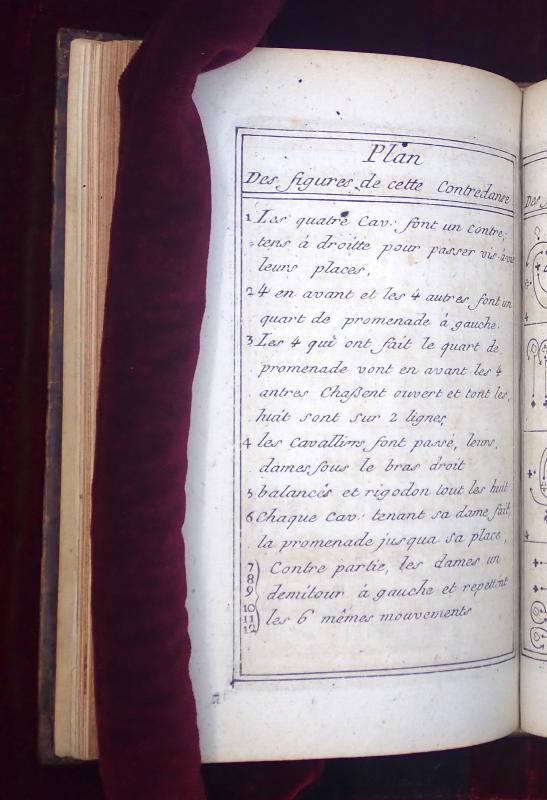 Plan
Des figures de cette Contredanse
1 Les quatre Cav: font un contre=
=tens á droitte pour passer vis-á-vis
leurs places,
2 4 en avant et les 4 autres font un
quart de promenade á gauche.
3 Les 4 qui ont fait le quart de
promenade vont en avant les 4
antres Chaßent ouvert et tout les,
huit sont sur 2 lignes
4 les Cavalliers font passé, leurs,
dames sous le bras droit
5 balancés et rigodon tout les huit
6 Chaque Cav: tenant sa dame fait,
la promenade jusqua sa place,
7 Contre partie, les dames un
8
9 demitour á gauche et repettent
10
11 les 6 mêmes mouvements
12
Des
4
4